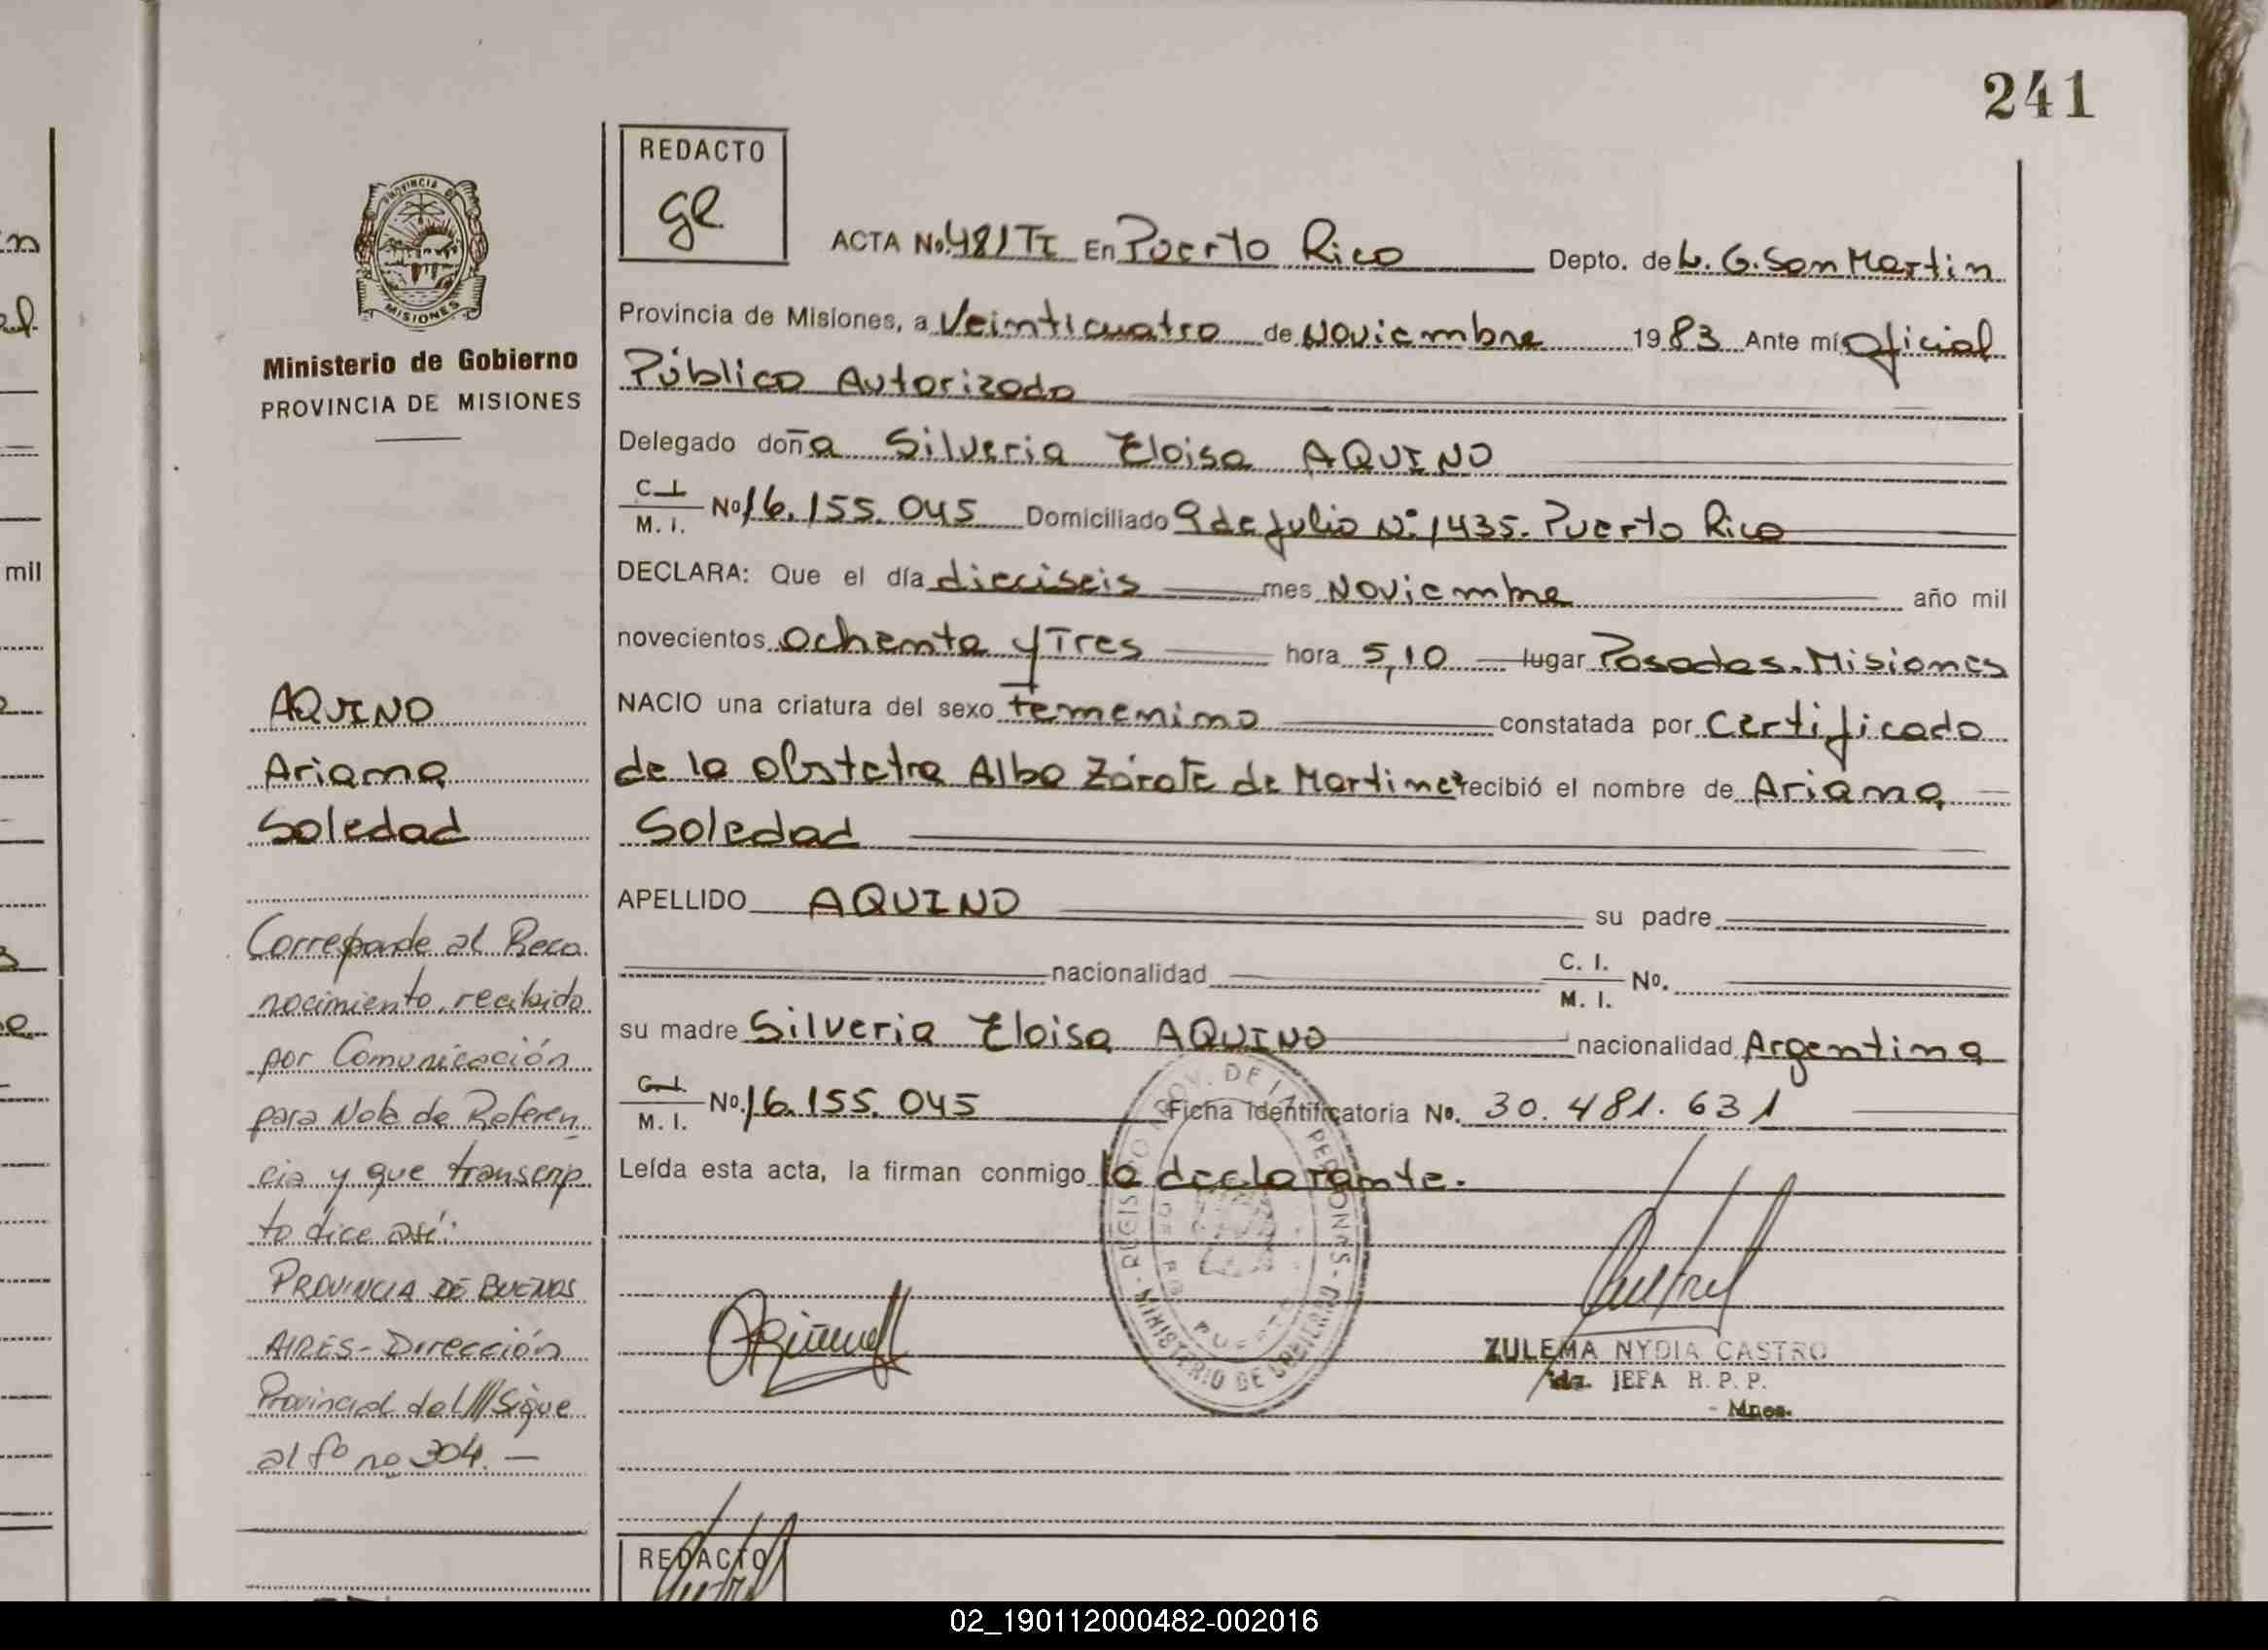 241
REDACTO
ge
ACTA No. 481 TI En Puerto Rico Depto. de L. G. San Martin
Provincia de Misiones, a Veinticuatro de Noviembre 1983 Ante mí Oficial
Público Autorizado
Delegado doña Silveria Eloisa AQUINO
C.I. M. I. No 16.155.045 Domiciliado 9 de Julio Nº 1435. Puerto Rico
DECLARA: Que el día dieciseis mes Noviembre año mil
novecientos ochenta y Tres hora 5,10 lugar Posadas. Misiones
NACIO una criatura del sexo femenino constatada por Certificado
de la Obstetra Alba Zárate de Martinez recibió el nombre de Ariana
Soledad
APELLIDO AQUINO su padre
nacionalidad C. I. M. I. No.
su madre Silveria Eloisa AQUINO nacionalidad Argentina
C.I. M. I. No. 16.155.045 Ficha Identificatoria No. 30.481.631
Leída esta acta, la firman conmigo la declarante.
ZULEMA NYDIA CASTRO
JEFA R. P. P.
Mnes.
REDACTO
PROVINCIA DE
MISIONES
Ministerio de Gobierno
PROVINCIA DE MISIONES
AQUINO
Ariana
Soledad
Corresponde al Reco
nocimiento, recibido
por Comunicación
para Nota de Referen
cia y que transcrip
to dice así:
PROVINCIA DE BUENOS
AIRES - Dirección
Provincial del /// Sigue
al fº nº 304. —
mil
02_190112000482-002016